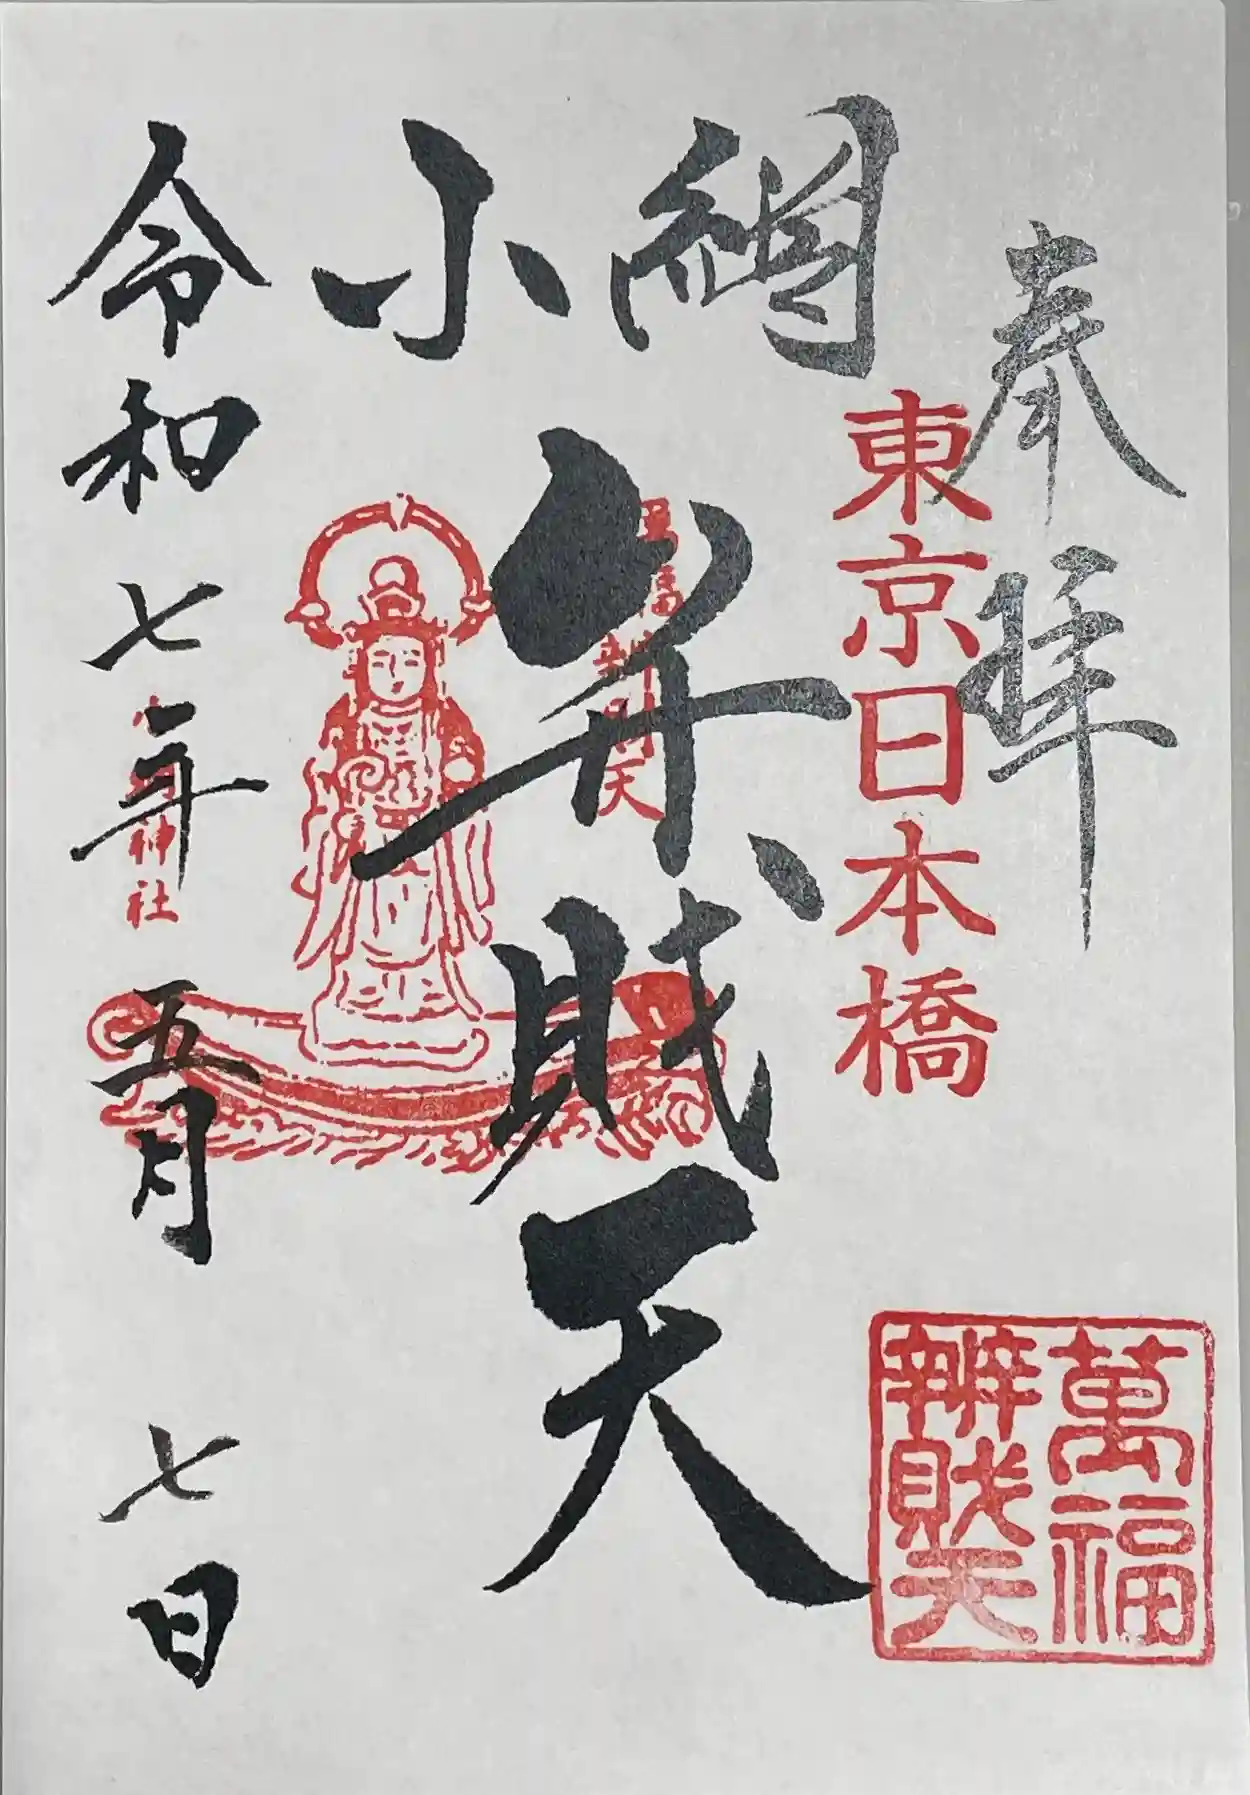 奉拝
東京日本橋
萬福
辨財天
小網
弁財天
萬福辨財天
小網神社
令和七年五月七日